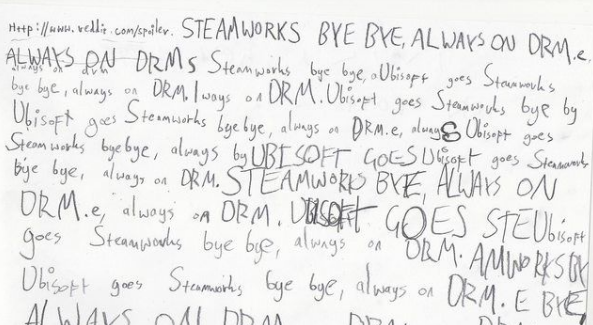 Http://www.reddit.com/spoiler. STEAMWORKS BYE BYE, ALWAYS ON DRM.e,
ALWAYS ON DRMs Steamworks bye bye, aUbisoft goes Steamworks
always on drm
bye bye, always on DRM. lways on DRM. Ubisoft goes Steamworks bye by
Ubisoft goes Steamworks bye bye, always on DRM.e, alwayS Ubisoft goes
Steamworks bye bye, always by UBISOFT GOES Ubisoft goes Steamworks
bye bye, always on DRM. STEAMWORKS BYE, ALWAYS ON
DRM.e, always on DRM. UBISOFT GOES STEUbisoft
goes Steamworks bye bye, always on DRM. AMWORKS BY
Ubisoft goes Steamworks bye bye, always on DRM. E BYE,
ALWAYS ON DRM